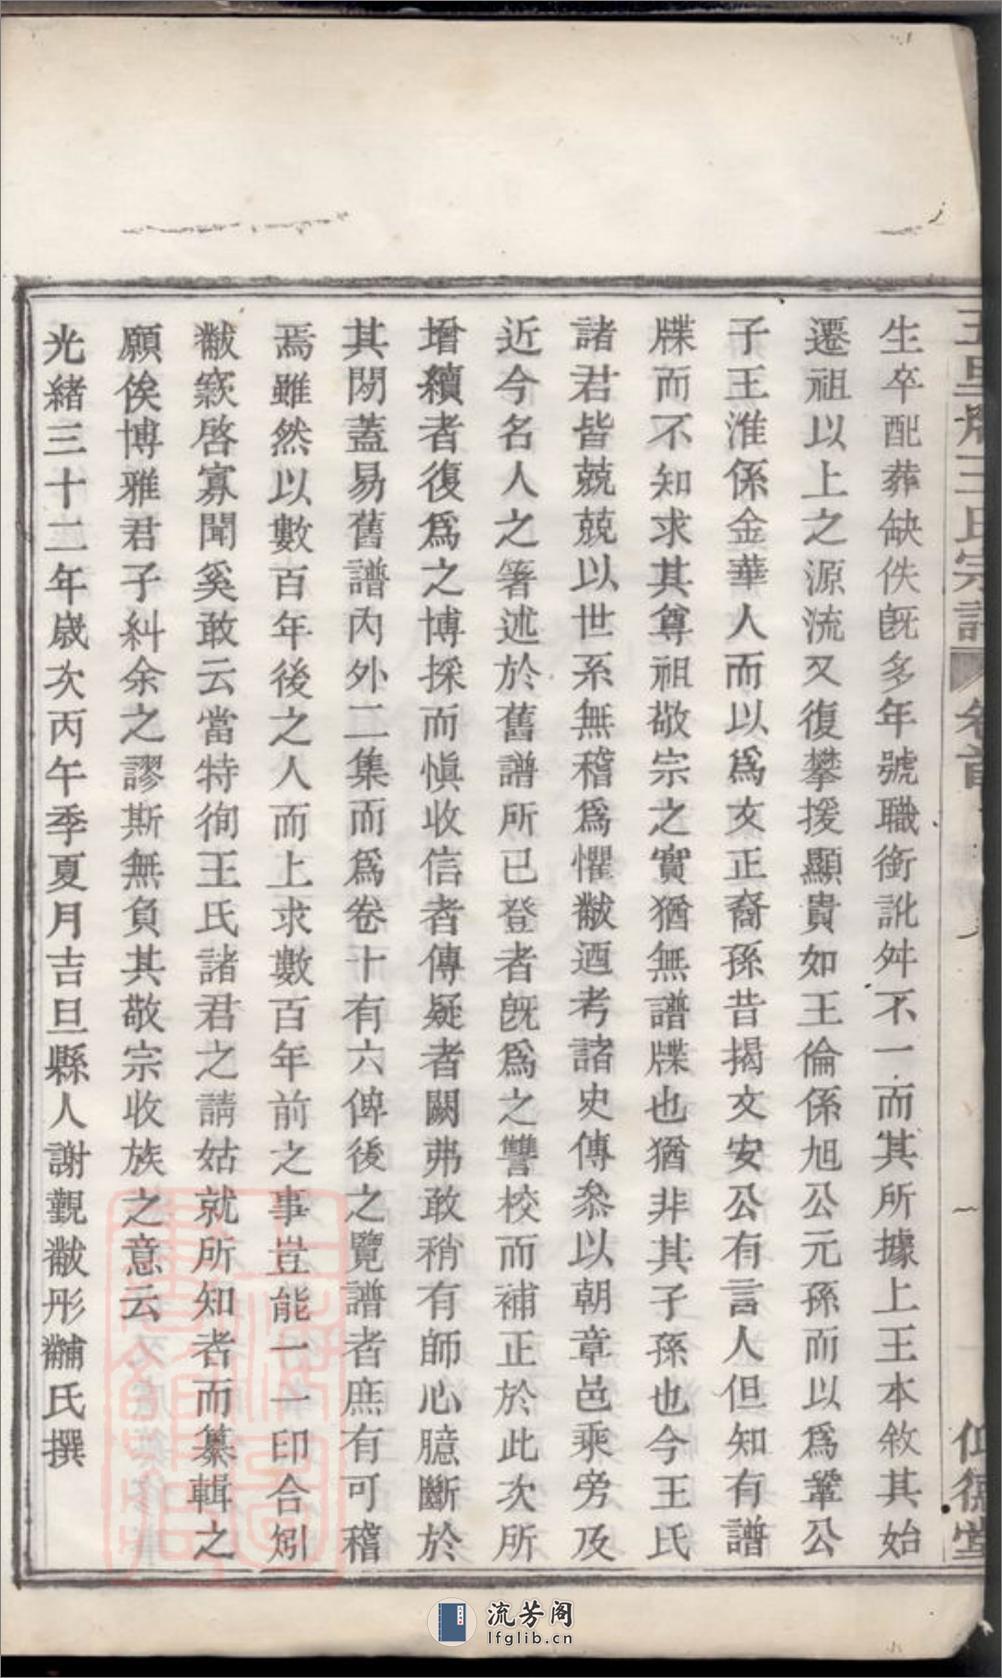 生卒配葬缺佚旣多年號職銜訛舛不一而其所據上王本敘其始
遷祖以上之源流又復攀援顯貴如王倫係旭公元孫而以爲鞏公
子王淮係金華人而以爲友正裔孫昔揭文安公有言人但知有譜
牒而不知求其尊祖敬宗之實猶無譜牒也猶非其子孫也今王氏
諸君皆兢兢以世系無稽爲懼黻迺考諸史傳叅以朝章邑乘旁及
近今名人之箸述於舊譜所已登者旣爲之讐校而補正於此次所
增續者復爲之博採而愼收信者傳疑者闕弗敢稍有師心臆斷於
其閒蓋易舊譜內外二集而爲卷十有六俾後之覽譜者庶有可稽
焉雖然以數百年後之人而上求數百年前之事豈能一一印合矧
黻窾啓寡聞奚敢云當特徇王氏諸君之請姑就所知者而纂輯之
願俟博雅君子糾余之謬斯無負其敬宗收族之意云
光緒三十二年歲次丙午季夏月吉旦縣人謝覲黻彤黼氏撰
王氏宗譜 卷首
德堂
流芳阁
lfglib.cn